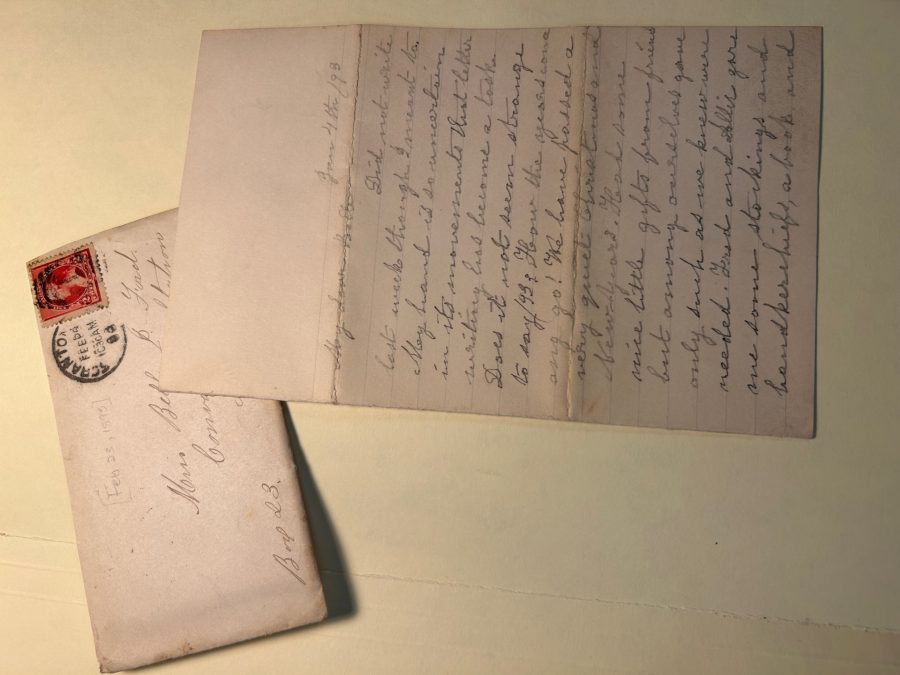 Jan 4th/93
My dear Belle
Did not write
last week though I meant to.
My hand is so uncertain
in its movements that letter
writing has become a task
Does it not seem strange
to say/93? How the years come
and go! We have passed a
very quiet Christmas and
New Years. Had some
nice little gifts from friends
but among ourselves gave
only such as we knew were
needed. Fred and Allie gave
me some stockings and
handkerchiefs, a book and
SCRANTON
FEB 24
10 30 AM
2
Miss Bell
Box 23.
[Feb 23, 1898]